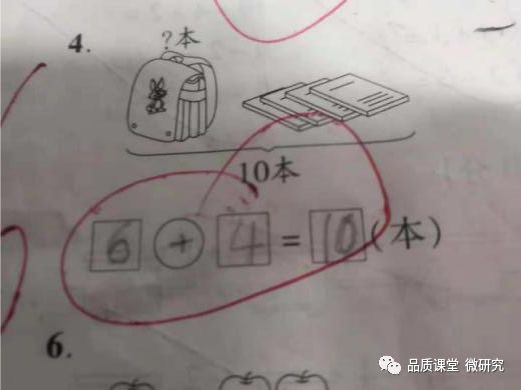 4.
?本
10本
6 + 4 = 10 (本)
6.
品质课堂 微研究